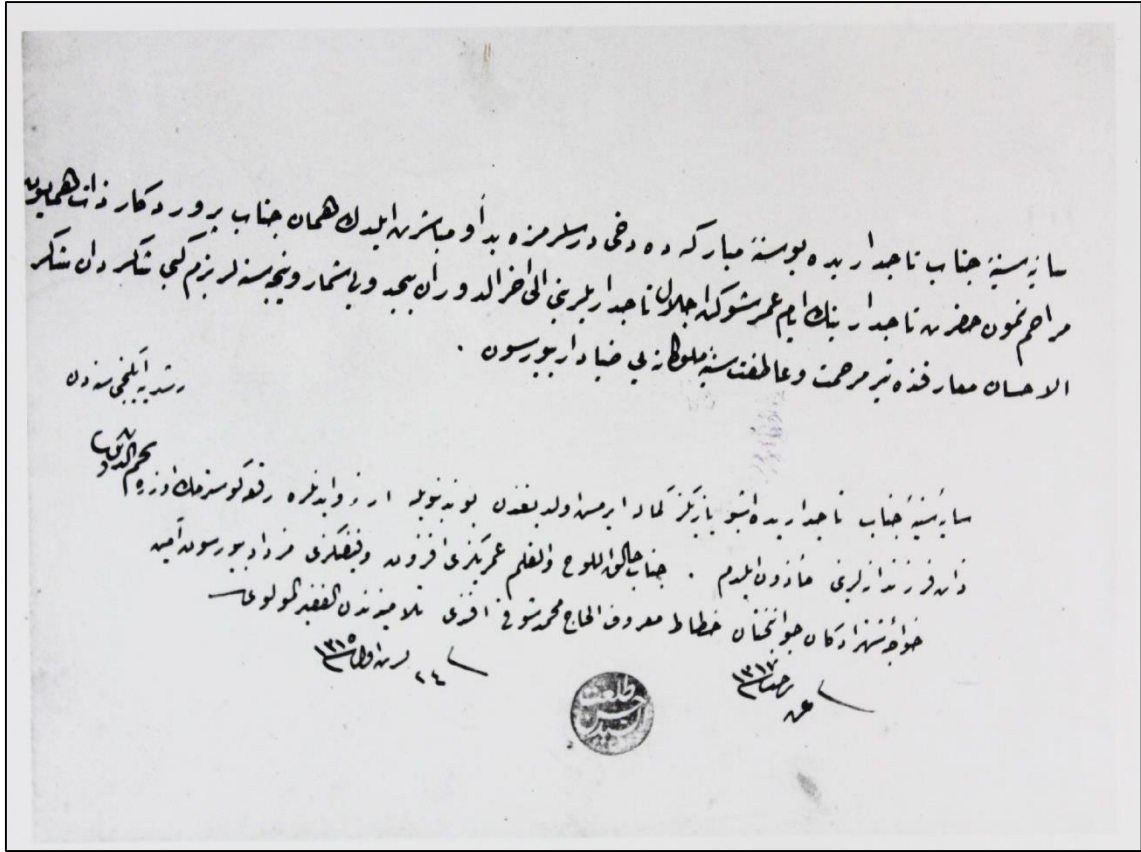 سایهٔ سنیهٔ جناب تاجداریده بو سنهٔ مبارکه ده دخی درسلرمزه بدأ و مباشرت ایلدك همان جناب پروردکار ذات همایون
مراحم نمون حضرت تاجدارینك ایام عمر شوکت و اجلال تاجداریلرینی الی اخر الدوران بیعد و بی شمار و نیجه سنه لر بزم کبی شاکردان
الاحسان معارفنده نیر مرحمت و عاطفت سنیهٔ ملوکانه یی ضیادار بیورسون .
رشدیه ایکنجی سنه دن
نجم الدین
سایهٔ سنیهٔ جناب تاجداریده اشبو یازیکز کماله ایرمش اولدیغندن بوندن بویله ارزو ایدنلره رقعه کوسترمك اوزره
ذات فرزندانه لرینی مأذون ایلدم . جناب خالق اللوح والقلم عمریکزی افزون و فیضکزی مزداد بیورسون آمین
خواجهٔ شهزادکان جوانبختان خطاط معروف الحاج محمد شوقی افندی تلامیذندن الفقیر المولوی
فی ١٣١٧ سنه
فی ٢٤ تشرین اول سنه ١٣١٥
السید حسن طلعت